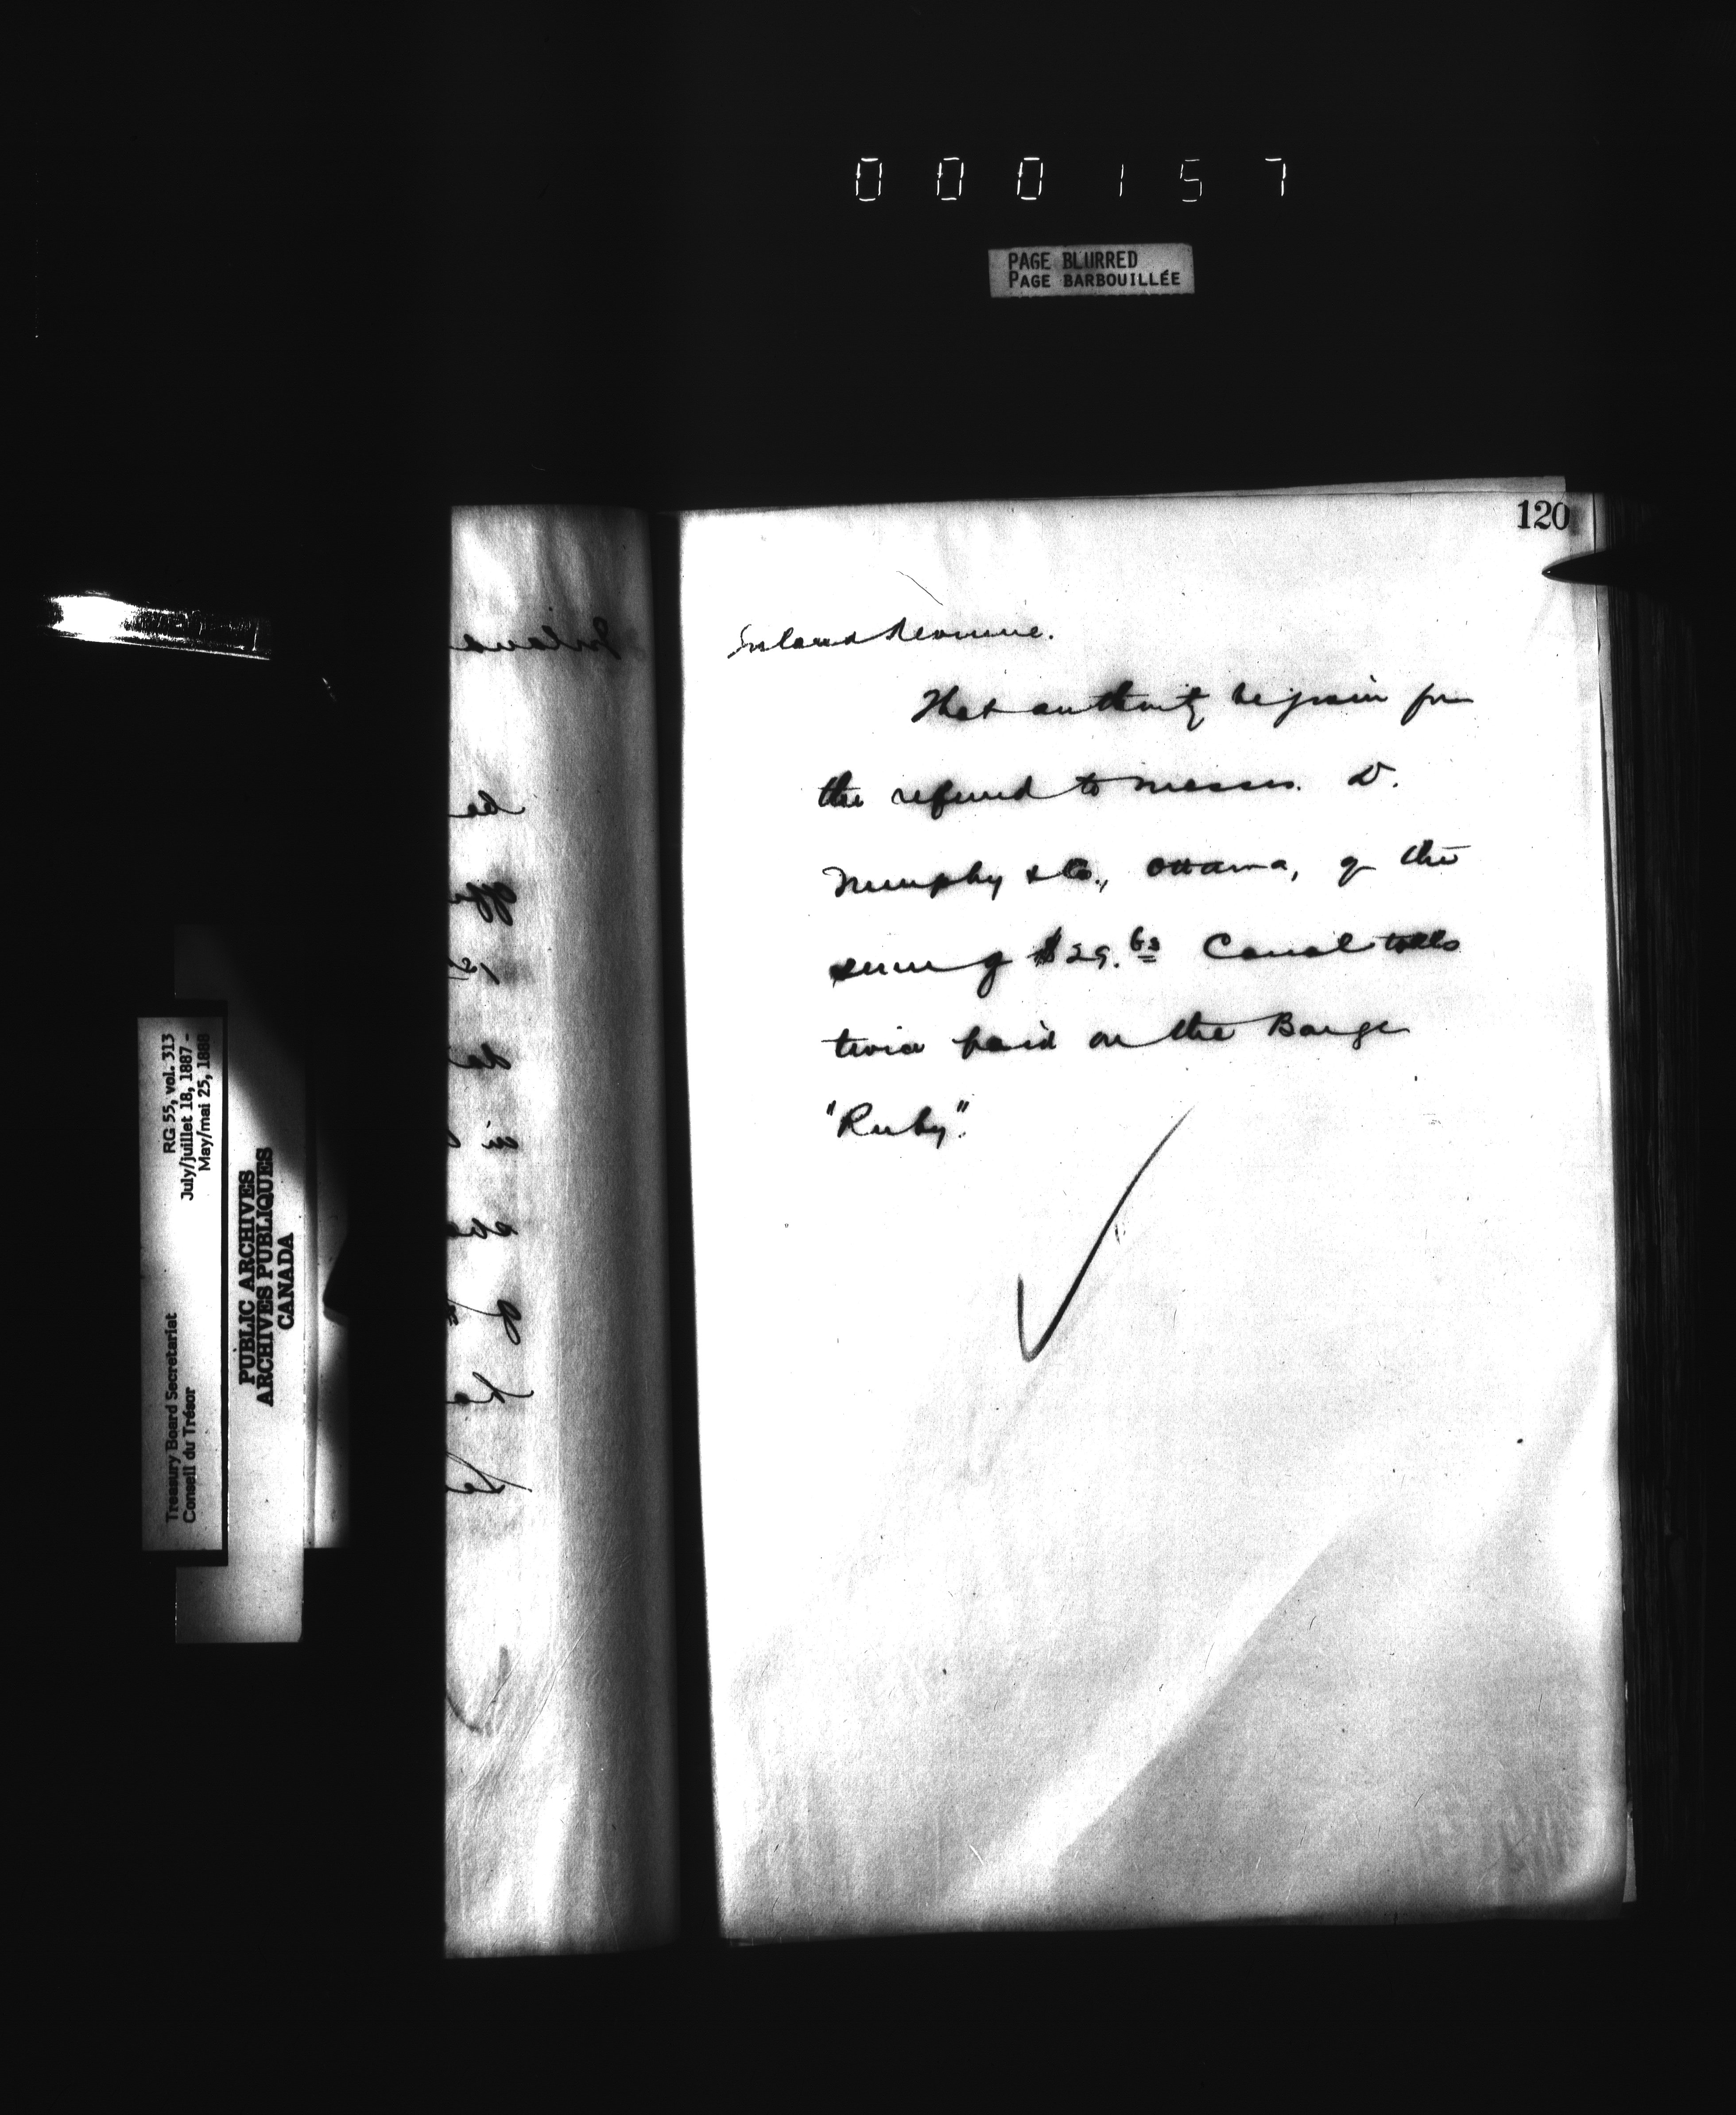 000157
PAGE BLURRED
PAGE BARBOUILLÉE
120
Inland Revenue.
That authority be given for
the refund to Messrs. D.
Murphy & Co., Ottawa, of the
sum of $29.63 Canal tolls
twice paid on the Barge
"Ruby".
RG 55, vol. 313
July/juillet 18, 1887 -
May/mai 25, 1888
Treasury Board Secretariat
Conseil du Trésor
PUBLIC ARCHIVES
ARCHIVES PUBLIQUES
CANADA